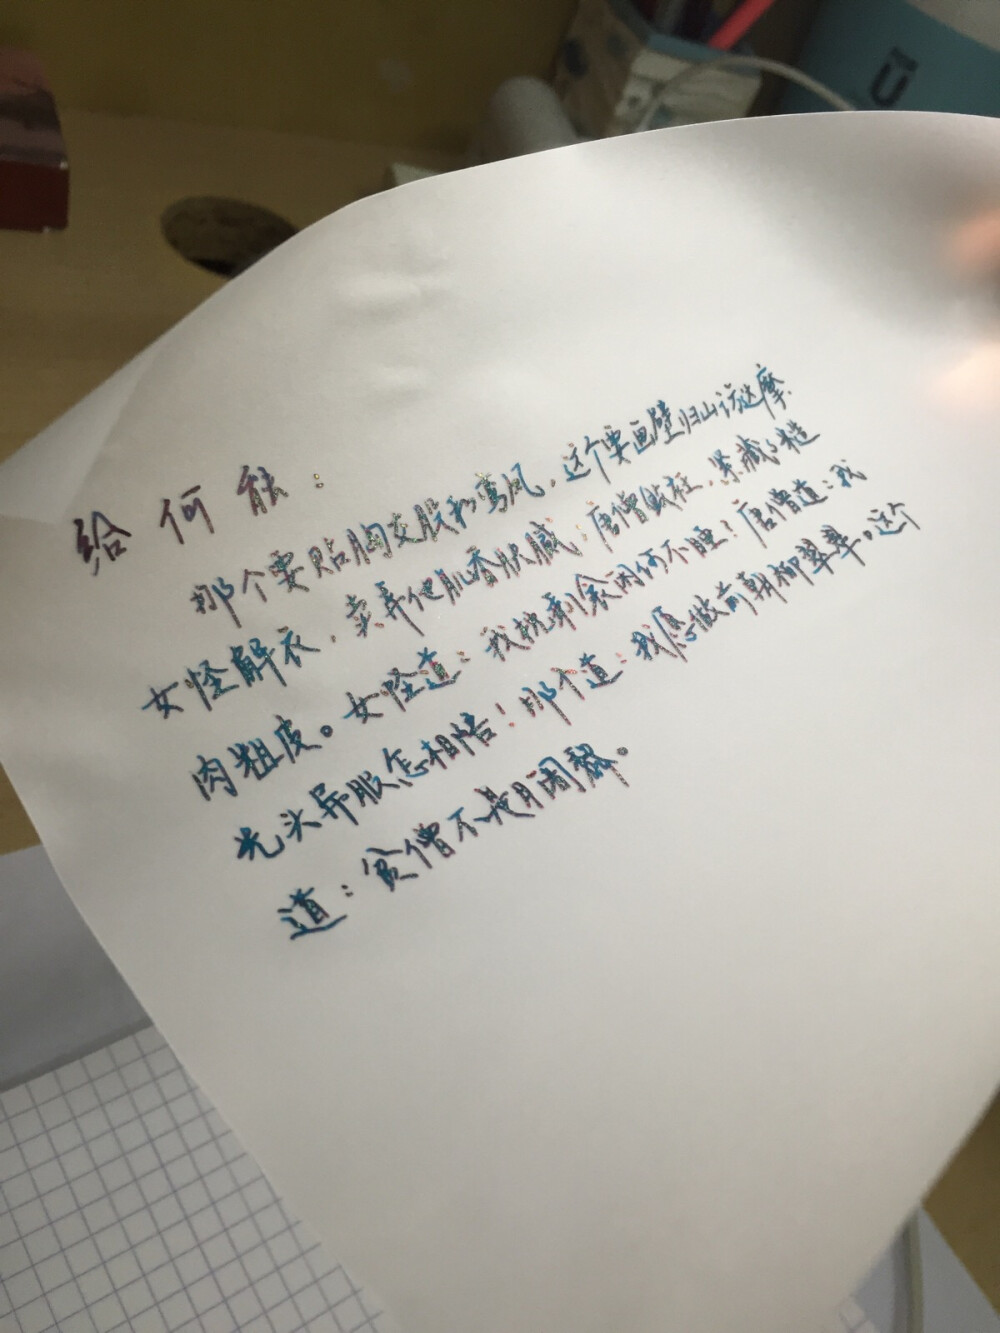 Ü
给何能：
那个要贴胸交股和鸾凤，这个要画壁归山访达摩
女怪解衣，卖弄他肌香肤腻；唐僧敛衽，紧藏了糙
肉粗皮。女怪道：我枕剩衾闲何不睡！唐僧道：我
光头异服怎相陪！那个道：我愿做前朝柳翠翠。这个
道：贫僧不是月阇黎。